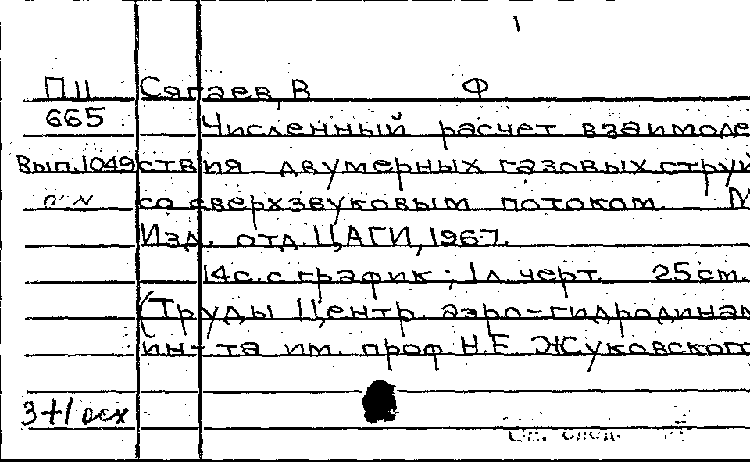 П 11 Сягаев, В Ф
665 Численный расчет взаимоде
Вып. 1049 ствия двумерных газовых струй
со сверхзвуковым потоком. М
Изд. отд. ЦАГИ, 1967.
14 с. с график; 1 л. черт. 25 cm.
(Труды Центр. аэро-гидродинам
ин-та им. проф. Н.Е. Жуковского
3+1 осх